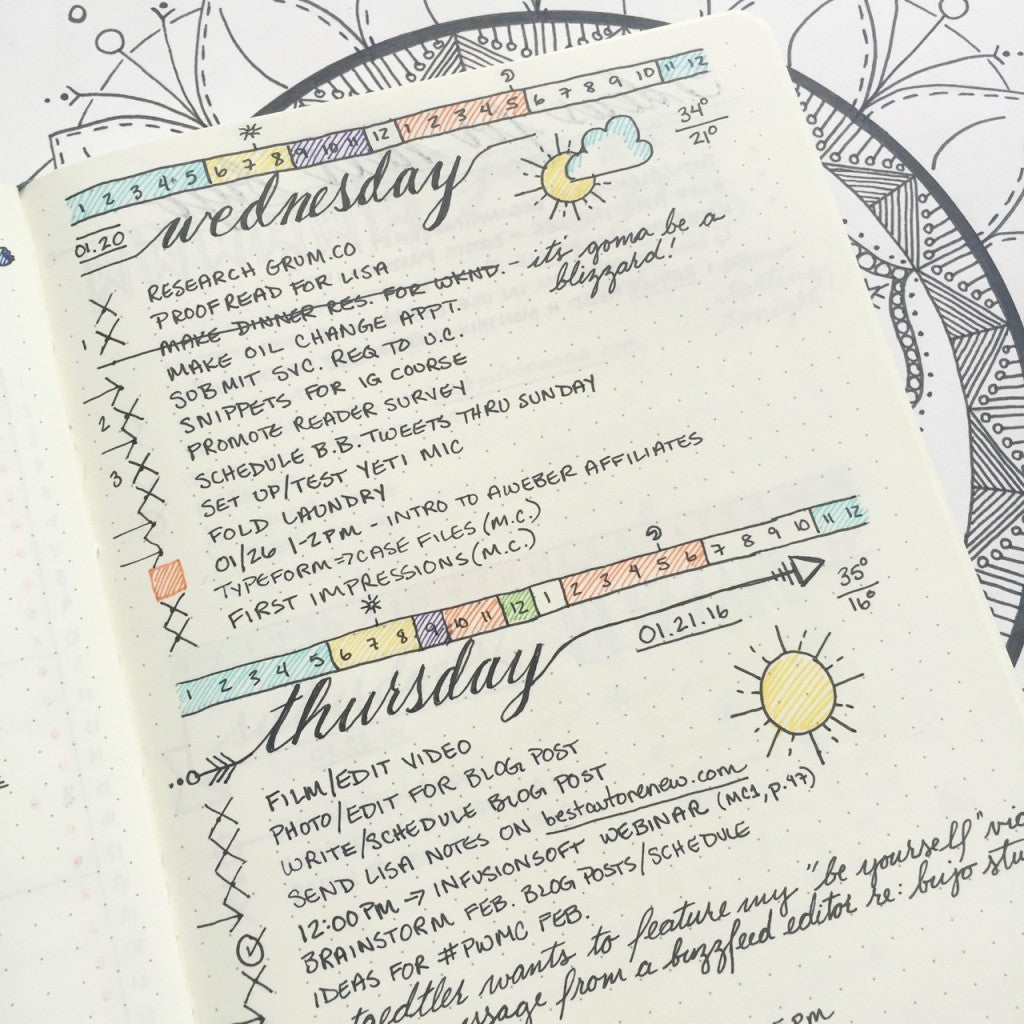 1 2 3 4 5 6 7 8 9 10 11 12 1 2 3 4 5 6 7 8 9 10 11 12
wednesday
34°
21°
01.20
RESEARCH GRUM.CO
PROOFREAD FOR LISA
1 MAKE DINNER RES. FOR WKND. - it's gonna be a
blizzard!
MAKE OIL CHANGE APPT.
SUBMIT SVC. REQ TO U.C.
2 SNIPPETS FOR IG COURSE
PROMOTE READER SURVEY
3 SCHEDULE B.B. TWEETS THRU SUNDAY
SET UP/TEST YETI MIC
FOLD LAUNDRY
01/26 1-2PM - INTRO TO AWEBER AFFILIATES
TYPEFORM => CASE FILES (M.C.)
FIRST IMPRESSIONS (M.C.)
1 2 3 4 5 6 7 8 9 10 11 12 1 2 3 4 5 6 7 8 9 10 11 12
thursday
01.21.16
35°
16°
FILM/EDIT VIDEO
PHOTO/EDIT FOR BLOG POST
WRITE/SCHEDULE BLOG POST
SEND LISA NOTES ON bestautorenew.com
12:00PM → INFUSIONSOFT WEBINAR (MC1, p.47)
BRAINSTORM FEB. BLOG POSTS/SCHEDULE
IDEAS FOR #PWMC FEB.
wants to feature my "be yourself"
from a buzzfeed editor re: bujo
PM